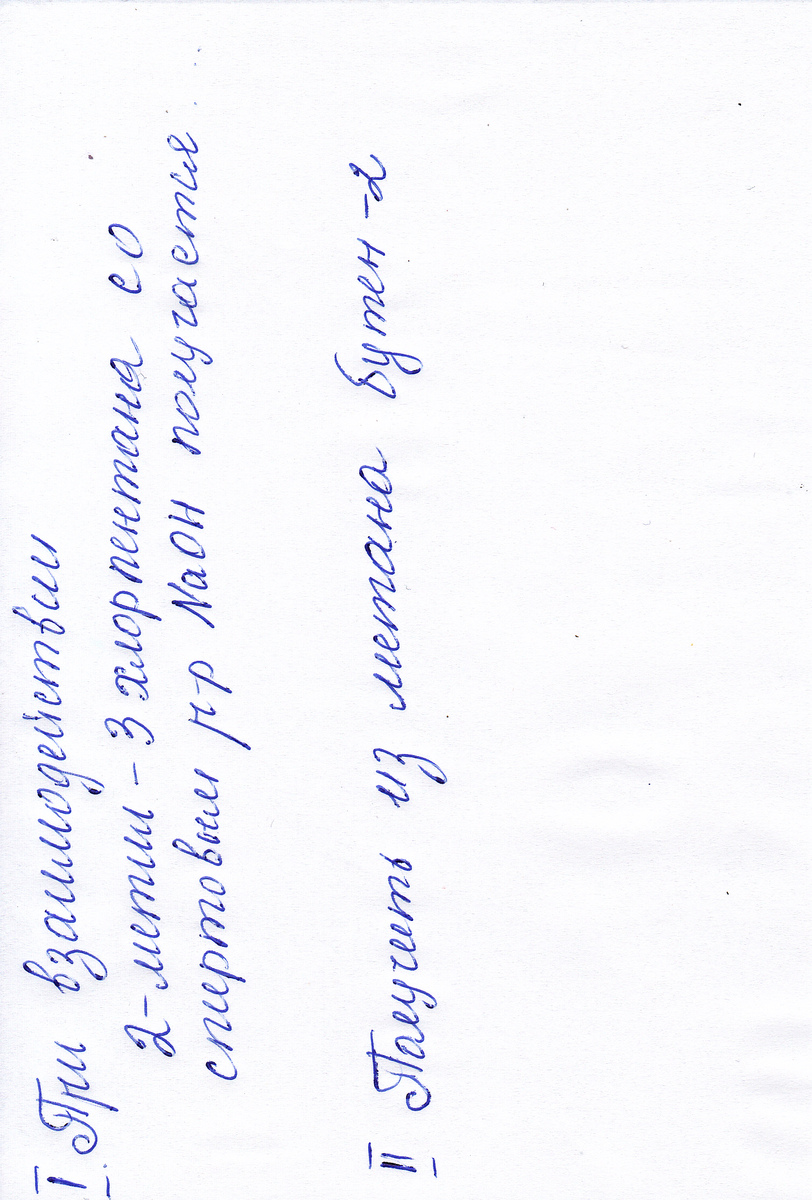 I При взаимодействии
2-метил-3 хлорпентана со
спиртовым р-р NaOH получается...
II Получить из метана бутен-2